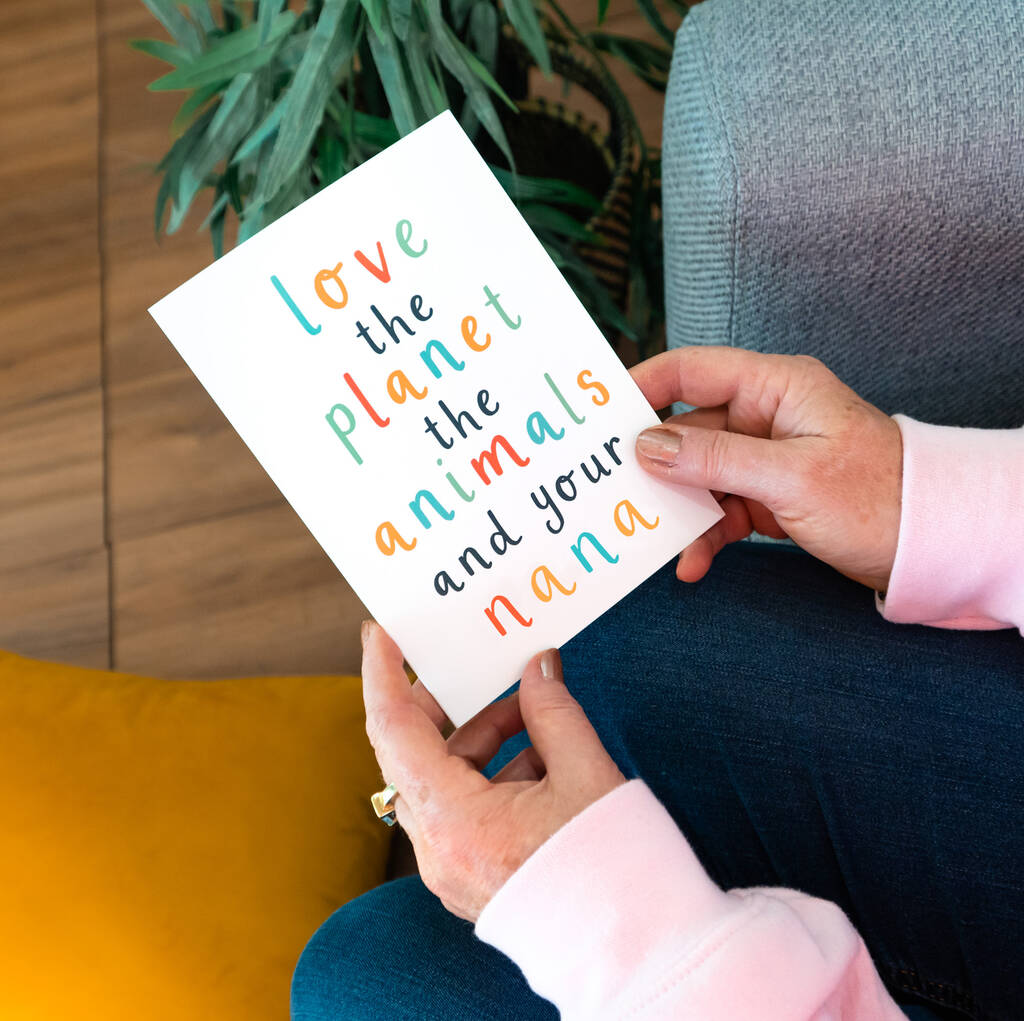 love
the
planet
the
animals
and your
nana